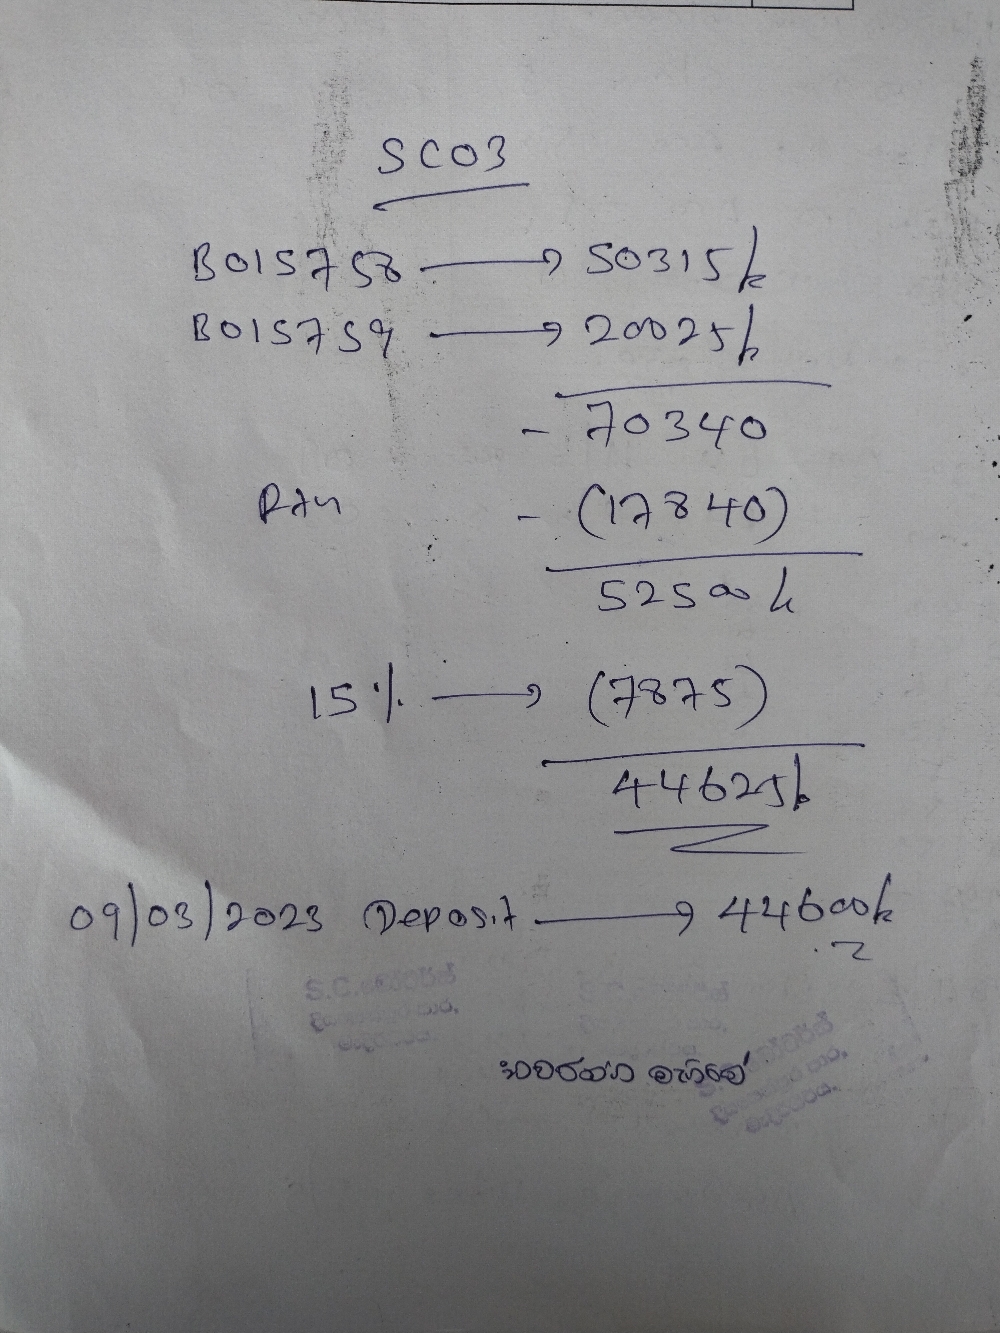 SC03
B015758 → 50315/=
B015759 → 20025/=
- 70340
Rtn - (17840)
52500/=
15% → (7875)
44625/=
09/03/2023 Deposit → 44600/=
S.C.